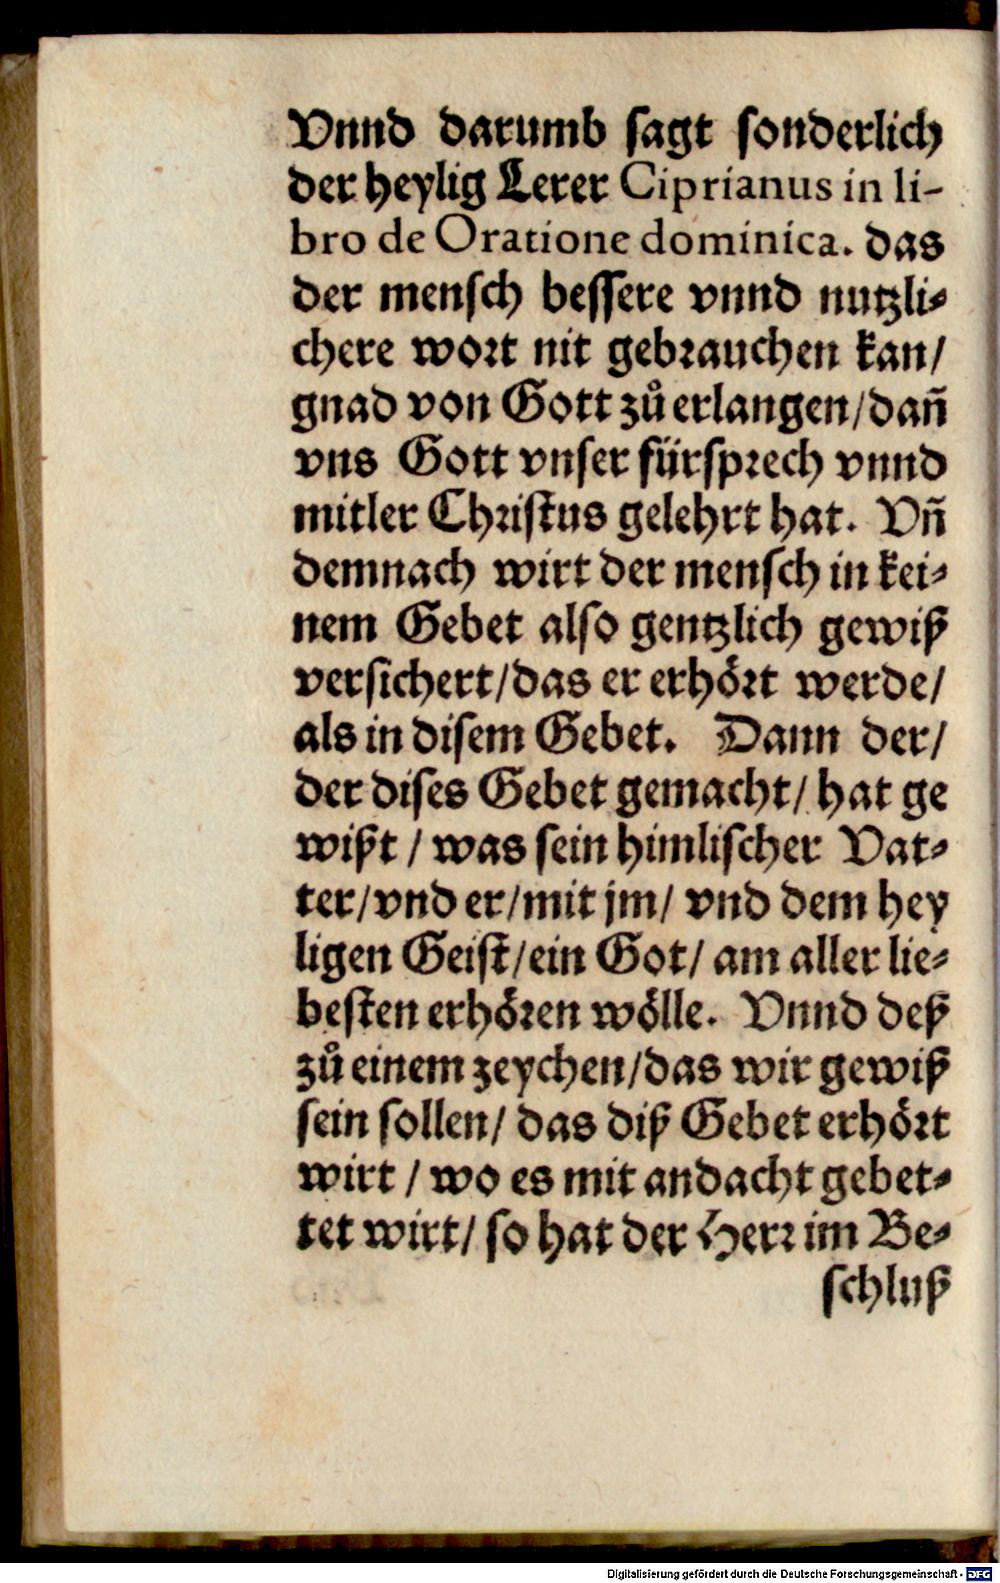 Vnnd darumb sagt sonderlich
der heylig Lerer Ciprianus in li-
bro de Oratione dominica. das
der mensch bessere vnnd nutzli-
chere wort nit gebrauchen kan/
gnad von Gott zů erlangen/dañ
vns Gott vnser fürsprech vnnd
mitler Christus gelehrt hat. Vñ
demnach wirt der mensch in kei-
nem Gebet also gentzlich gewiß
versichert/das er erhört werde/
als in disem Gebet. Dann der/
der dises Gebet gemacht/ hat ge
wißt / was sein himlischer Vat-
ter/vnd er/mit jm/ vnd dem hey
ligen Geist/ein Got/ am aller lie-
besten erhören wölle. Vnnd deß
zů einem zeychen/das wir gewiß
sein sollen/ das diß Gebet erhört
wirt / wo es mit andacht gebet-
tet wirt/ so hat der Herr im Be-
schluß
Digitalisierung gefördert durch die Deutsche Forschungsgemeinschaft - DFG